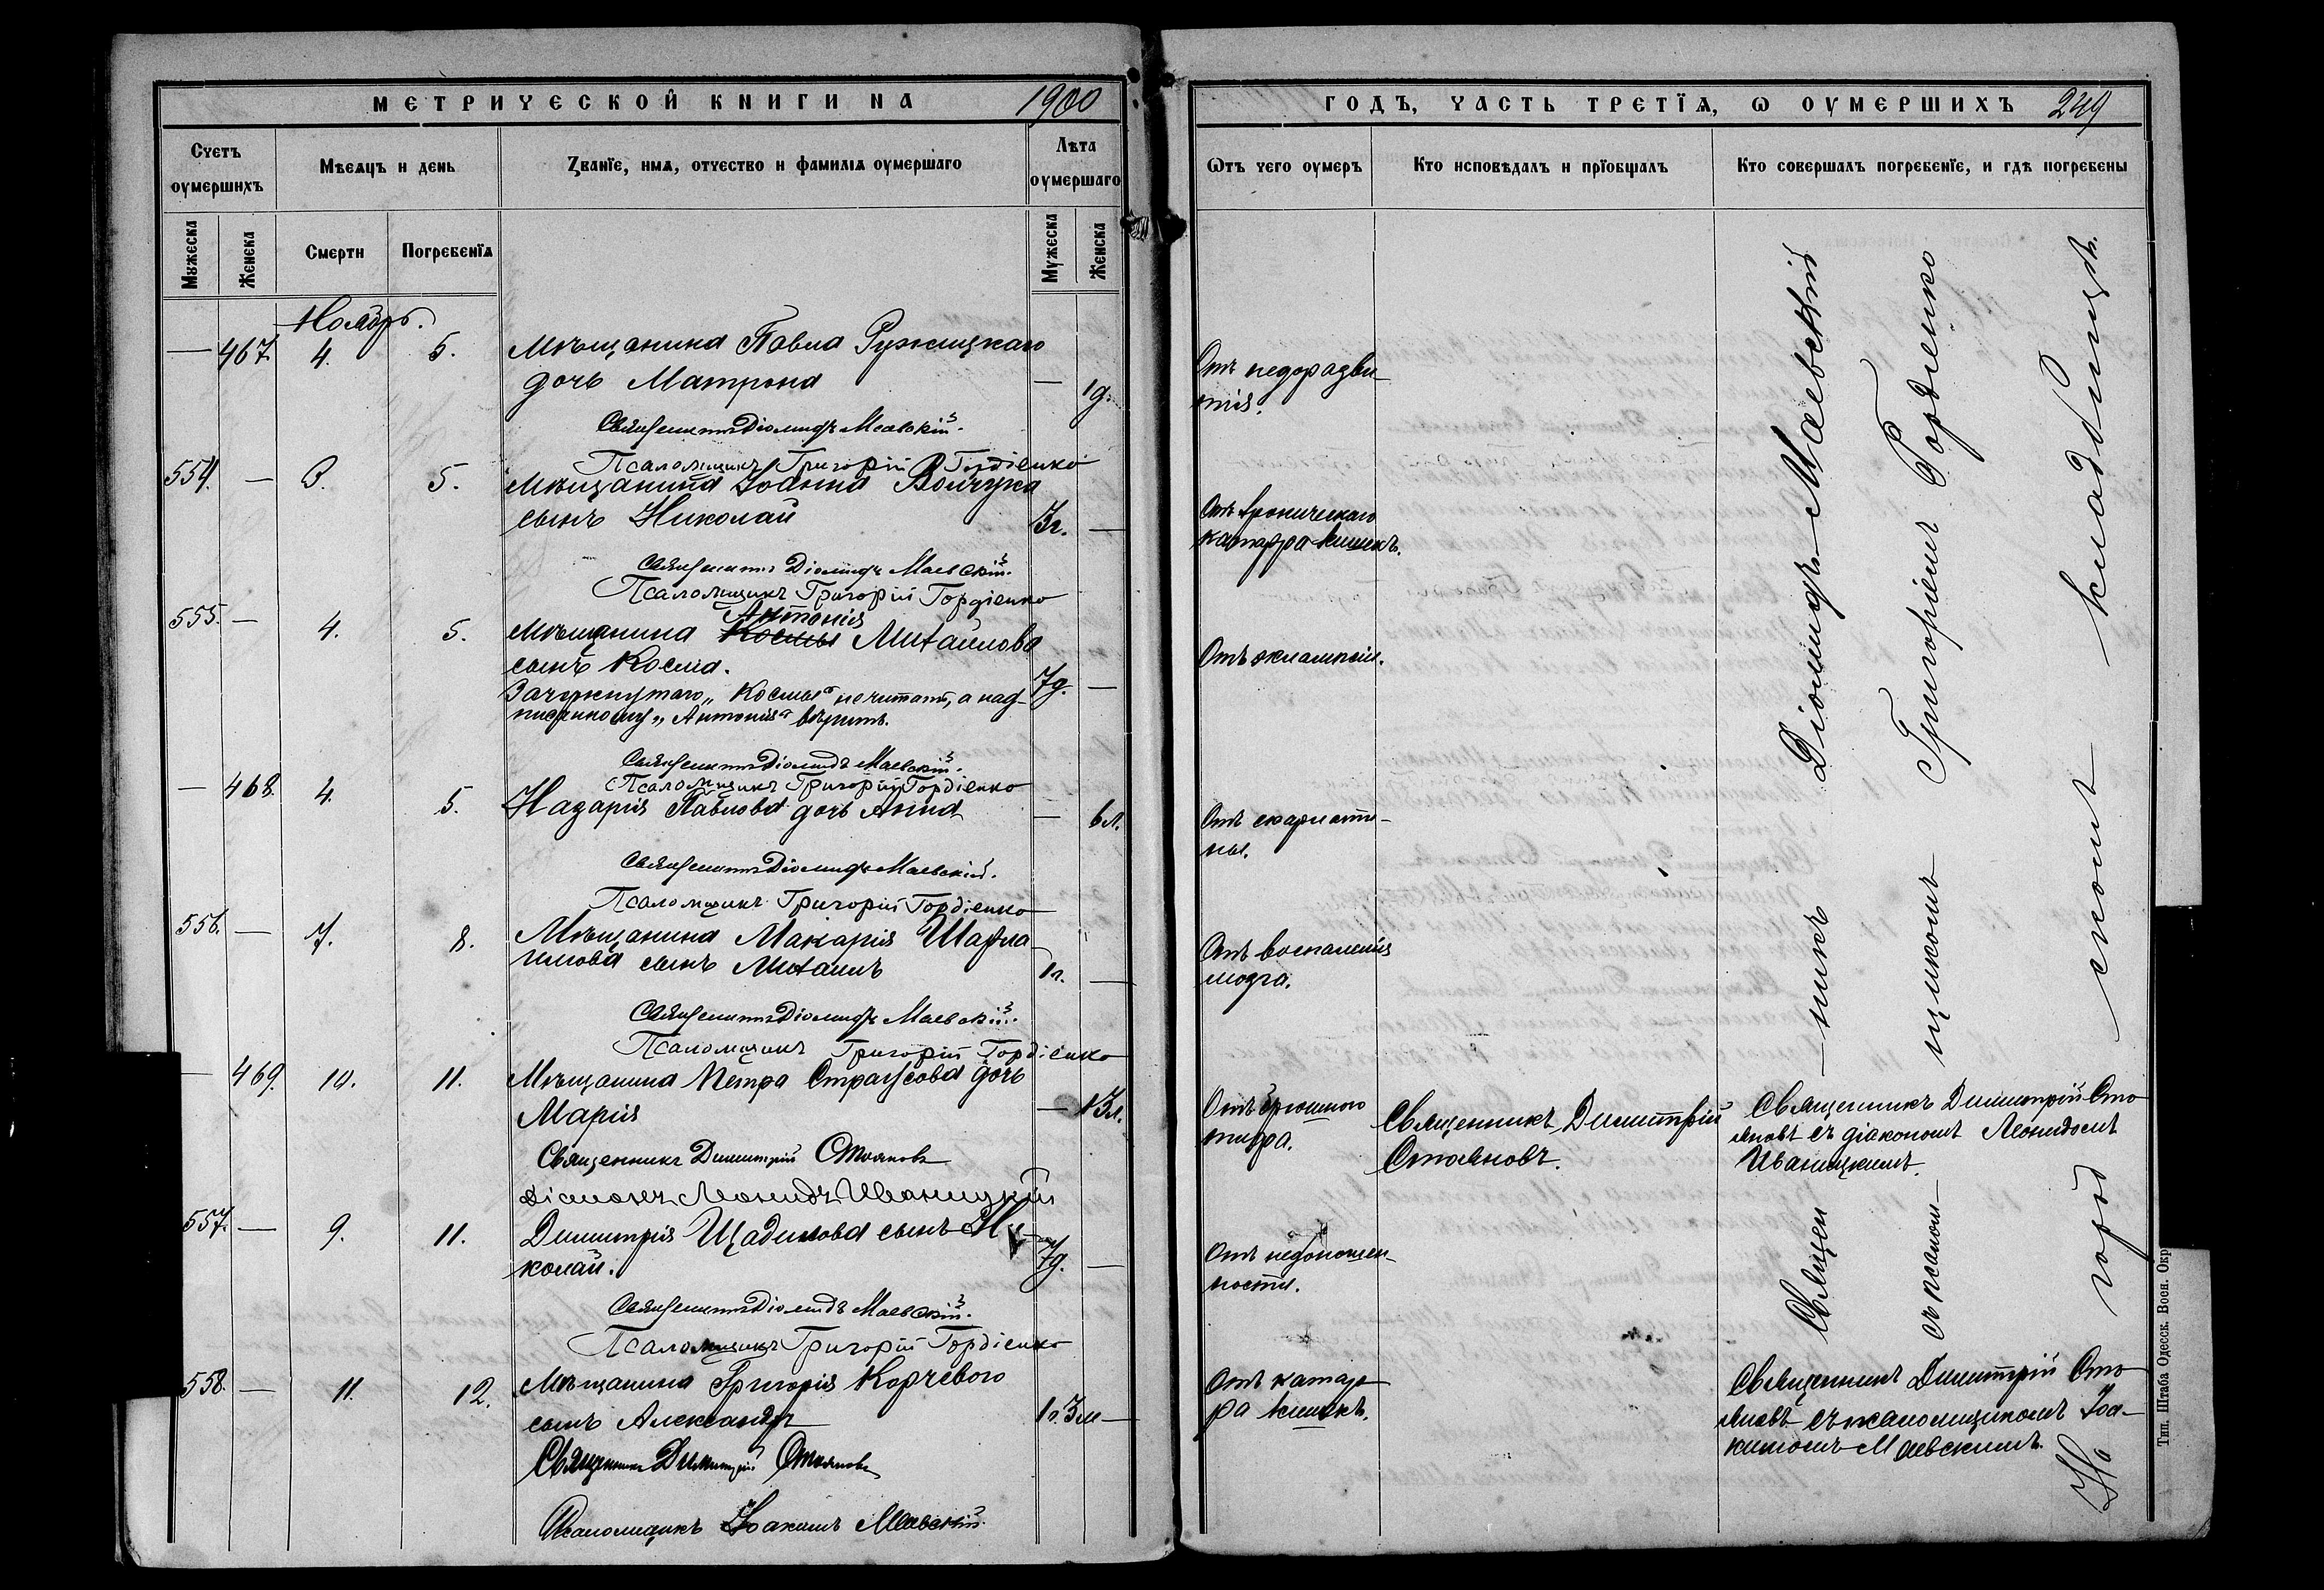 МЕТРИЧЕСКОЙ КНИГИ НА 1900
Счетъ умершихъ
Мѣсяцъ и день
Званїе, имя, отчество и фамилія умершаго
Лѣта умершаго
Мужеска
Женска
Смерти
Погребенїя
Мужеска
Женска
Ноябрь.
— 467. 4. 5. Мѣщанина Павла Ружицкаго
дочь Матрона — 1д.
Священникъ Діомидъ Маевскій.
Псаломщикъ Григорій Гордіенко
554. — 3. 5. Мѣщанина Іоанна Волчука
сынъ Николай 3г. —
Священникъ Діомидъ Маевскій.
Псаломщикъ Григорій Гордіенко
Антонія
555. — 4. 5. Мѣщанина Космы Михайлова
сынъ Косма. 7д. —
Зачеркнутаго „Космы" не читать, а над-
писанному „Антонія" вѣрить.
Священникъ Діомидъ Маевскій.
Псаломщикъ Григорій Гордіенко
— 468. 4. 5. Назарія Павлова дочь Анна — 6л.
Священникъ Діомидъ Маевскій.
Псаломщикъ Григорій Гордіенко
556. — 7. 8. Мѣщанина Макарія
сынъ Михаилъ 1г. —
Священникъ Діомидъ Маевскій.
Псаломщикъ Григорій Гордіенко
— 469. 10. 11. Мѣщанина Петра дочь
Марія — 13л.
Священникъ Димитрій Стояновъ
Діаконъ Леонидъ Иваницкій
557. — 9. 11. Димитрія Щадилова сынъ Ни-
колай. 7д. —
Священникъ Діомидъ Маевскій.
Псаломщикъ Григорій Гордіенко
558. — 11. 12. Мѣщанина Григорія Корчевого
сынъ Александръ 1г. 3м —
Священникъ Димитрій Стояновъ
Псаломщикъ Іоакимъ Маевскій.
ГОДЪ, ЧАСТЬ ТРЕТЇЯ, Ѡ ОУМЕРШИХЪ 249
Ѿтъ чего оумеръ
Кто исповѣдалъ и прїобщалъ
Кто совершалъ погребенїе, и гдѣ погребены
Отъ недоразви-
тія.
Отъ хроническаго
катарра кишекъ.
Отъ эклампсіи.
Отъ скарлати-
ны.
Отъ воспаленія
мозга.
Отъ брюшного
тифа.
Священникъ Димитрій
Стояновъ.
Священникъ Димитрій Сто
яновъ съ діакономъ Леонидомъ
Иваницкимъ.
Отъ недоношен-
ности.
Отъ катар-
ра кишекъ.
Священникъ Димитрій Сто
яновъ съ псаломщикомъ Іоа-
кимомъ Маевскимъ.
Священ — никъ Діомидъ Маевскій
съ псалом — щикомъ Григоріемъ Гордіенко
На город — скомъ кладбищѣ.
Тип. Штаба Одесск. Воен. Окр